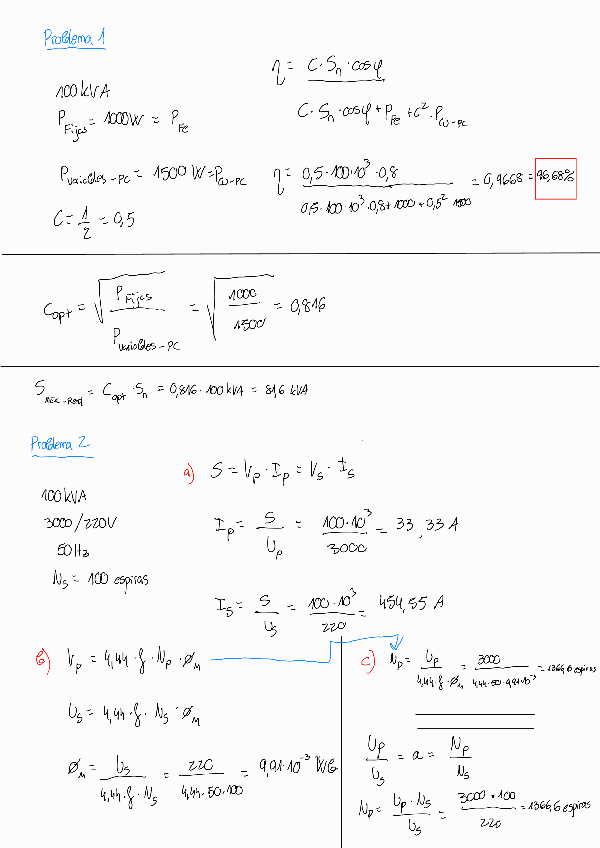 Problema 1
100 kVA
P Fijas = 1000W = P Fe
P variables-PC = 1500 W = P cu-PC
C = 1/2 = 0,5
η = C·Sn·cosφ / C·Sn·cosφ + P Fe + C²·P cu-PC
η = 0,5·100·10³·0,8 / 0,5·100·10³·0,8 + 1000 + 0,5² 1500 = 0,9668 = 96,68%
Copt = √(P Fijas / P variables-PC) = √(1000 / 1500) = 0,816
S MAX-Rend = Copt·Sn = 0,816·100 kVA = 81,6 kVA
Problema 2
100 kVA
3000/220V
50 Hz
Ns = 100 espiras
a) S = Vp·Ip = Vs·Is
Ip = S / Up = 100·10³ / 3000 = 33,33 A
Is = S / Us = 100·10³ / 220 = 454,55 A
b) Vp = 4,44·f·Np·ØM
Us = 4,44·f·Ns·ØM
ØM = Us / 4,44·f·Ns = 220 / 4,44·50·100 = 9,91·10⁻³ Wb
c) Np = Up / 4,44·f·ØM = 3000 / 4,44·50·9,91·10⁻³ = 1366,6 espiras
Up / Us = a = Np / Ns
Np = Up·Ns / Us = 3000·100 / 220 = 1366,6 espiras